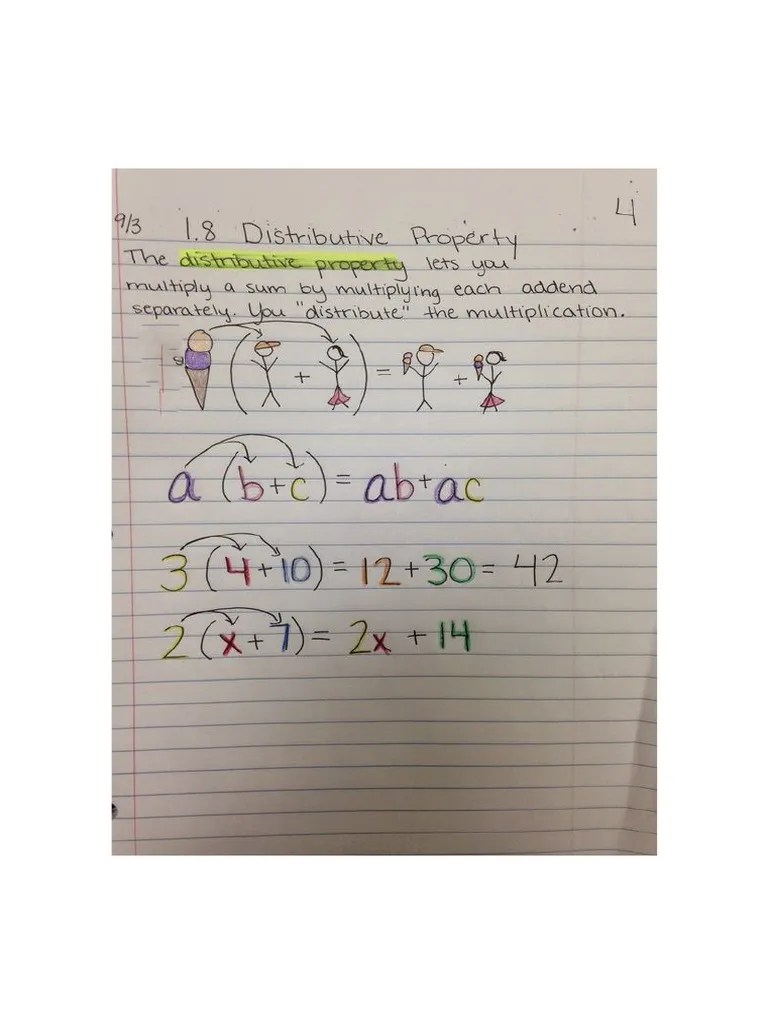 4
9/3 1.8 Distributive Property
The distributive property lets you
multiply a sum by multiplying each addend
separately. You "distribute" the multiplication.
( + ) = +
a (b+c) = ab+ac
3 (4+10) = 12+30= 42
2 (x+7) = 2x + 14